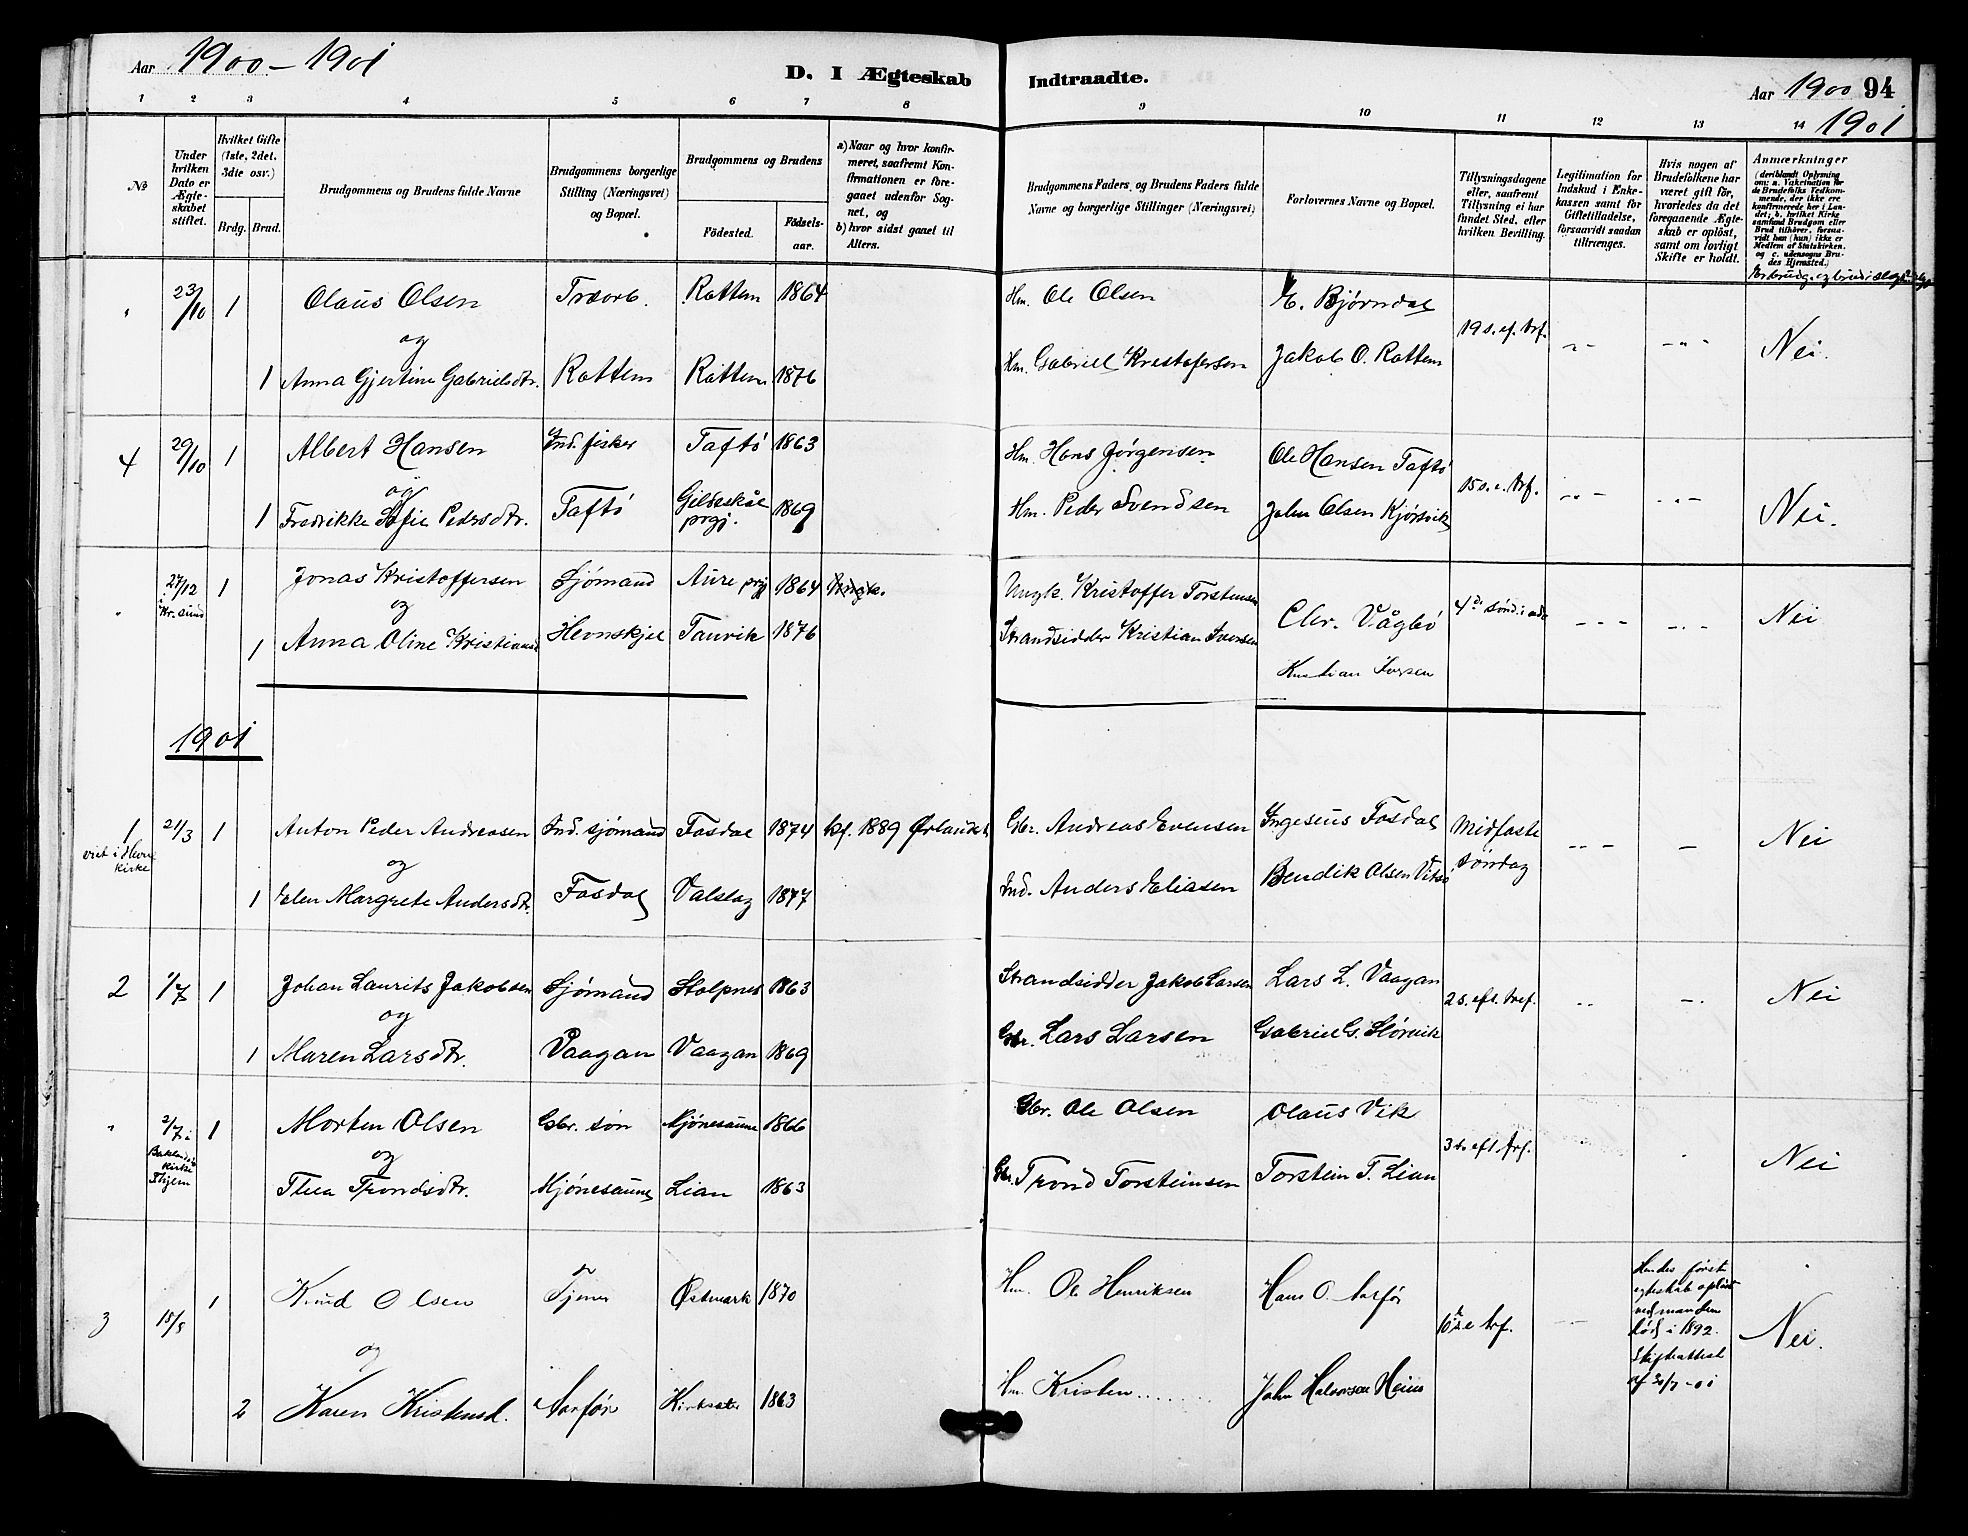 Aar 1900-1901
D. I Ægteskab Indtraadte.
Aar 1900 94
1901
1 2 3 4 5 6 7 8 9 10 11 12 13 14
No
Under hvilken Dato er Ægteskabet stiftet.
Hvilket Gifte (1ste, 2det, 3dte osv.)
Brdg. Brud.
Brudgommens og Brudens fulde Navne
Brudgommens borgerlige Stilling (Næringsvei) og Bopæl.
Brudgommens og Brudens
Fødested.
Fødselsaar.
a) Naar og hvor konfirmeret, saafremt Konfirmationen er foregaaet udenfor Sognet, og
b) hvor sidst gaaet til Alters.
Brudgommens Faders og Brudens Faders fulde Navne og borgerlige Stillinger (Næringsvei)
Forlovernes Navne og Bopæl.
Tillysningsdagene eller, saafremt Tillysning ei har fundet Sted, efter hvilken Bevilling.
Legitimation for Indskud i Enkekassen samt for Giftetilladelse, forsaavidt saadan tiltrænges.
Hvis nogen af Brudefolkene har været gift før, hvorledes da det foregaaende Ægteskab er opløst, samt om lovligt Skifte er holdt.
Anmærkninger (deriblandt Oplysning om: a. Vakcination for de Brudefolks Vedkommende, der ikke ere konfirmerede her i Landet, b. hvilket Kirkesamfund Brudgom eller Brud tilhører, forsaavidt han (hun) ikke er Medlem af Statskirken, og c. udensogns Brudes Hjemsted.)
" 23/10 1 Olaus Olsen Træarb. Rottem 1864 Hm. Ole Olsen E. Bjørndal 19 s. ef. trf. Nei.
og
1 Anna Gjertine Gabrielsdtr. Rottem Rottem 1876 Hm. Gabriel Kristofersen Jakob O. Rottem
4 29/10 1 Albert Hansen Ind. fisker Taftö 1863 Hm. Hans Jørgensen Ole Hansen Taftö 15 s. e. trf. Nei.
og
1 Fredrikke Sofie Pedersdtr. Taftö Gildeskål prgj. 1869 Hm. Peder Svendsen John Olsen Kjörsvik
" 27/12 i Kr.sund 1 Jonas Kristoffersen Sjömand Aure prgj 1864 Ungk. Kristoffer Torstensen Chr. Vågbö 4de sønd. i adv. Nei
og
1 Anna Oline Kristiansd Hevnskjel Tanvik 1876 Strandsidder Kristian Iversen Kristian Iversen
1901
1 21/3 1 Anton Peder Andreasen Ind. sjömand Fosdal 1874 kf. 1889 Ørlandet Gbr. Andreas Evensen Ingesius Fosdal Midfaste söndag Nei
viet i Hevne kirke
og
1 Elen Margrete Andersdtr. Fosdal Valslag 1877 Ind. Anders Eliasen Bendik Olsen Vitsö
2 1/7 1 Johan Laurits Jakobsen Sjömand Stolpnes 1863 Strandsidder Jakob Larsen Lars L. Vaagan 2 s. eft. tref. Nei
og
1 Maren Larsdtr. Vaagan Vaagan 1869 Gbr. Lars Larsen Gabriel G. Störvik
" 2/7 i Baklandets kirke Thjem 1 Morten Olsen Gbr. sön Mjönesaune 1866 Gbr. Ole Olsen Olaus Vik 3 s. eft. trf. Nei
og
Thea Trondsdtr. Mjönesaune Lian 1863 Gbr. Trond Torsteinsen Torstein T. Lian
3 15/8 1 Knud Olsen Tjener Østmark 1870 Hm. Ole Henriksen Hans O. 10de s. e trf. Hendes første egteskab opløst ved mandens død i 1892. Skifteattest af 30/7-01 Nei.
og
2 Karen Kristensd. Kirksæter 1863 Hm. Kristen...... John Halvorsen